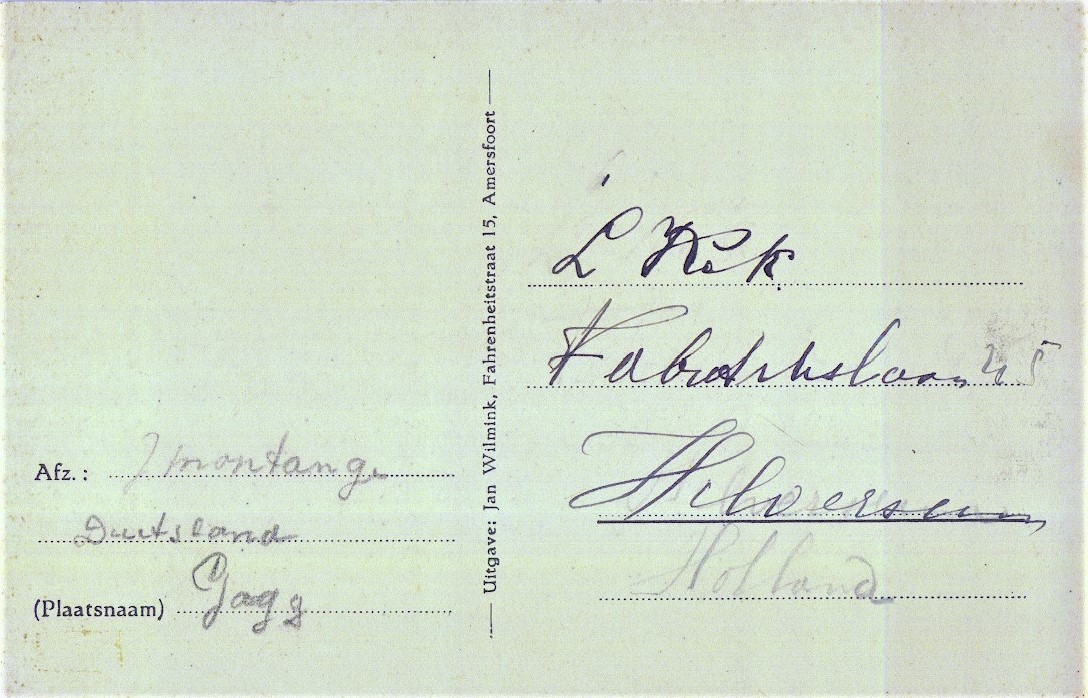 Afz.: J montange
Duitsland
(Plaatsnaam) Gagg
Uitgave: Jan Wilmink, Fahrenheitstraat 15, Amersfoort
L Kok
Hilversum
Holland